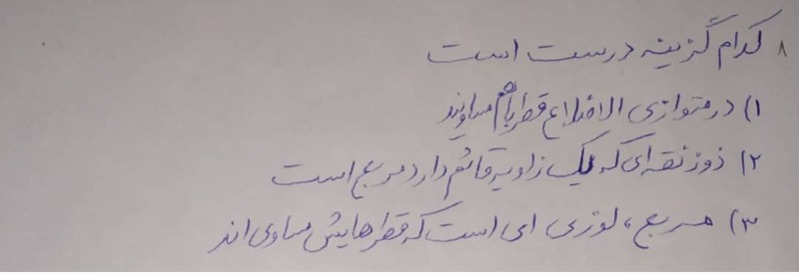 ۸ کدام گزینه درست است
۱) در متوازی الاضلاع قطرها باهم مساویند
۲) ذوزنقه ای که یک زاویه قائم دارد مربع است
۳) مربع، لوزی ای است که قطرهایش مساوی اند